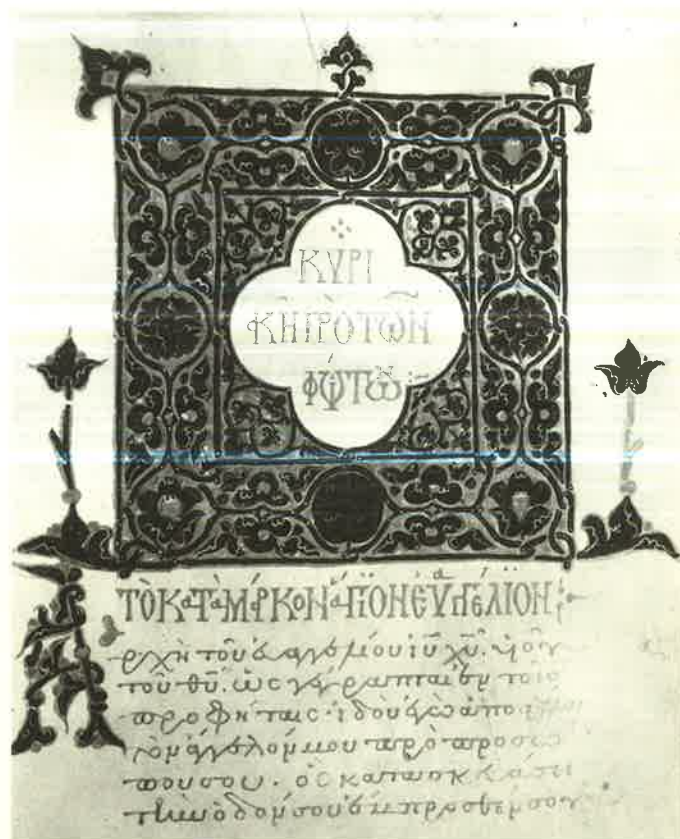 ΚΥΡΙ
ΚΗ ΠΡΟ ΤΩΝ
ΦΩΤΩ
ΤΟ ΚΑΤΑ ΜΑΡΚΟΝ ἍΓΙΟΝ ΕΥΑΓΓΕΛΙΟΝ
Ἀρχὴ τοῦ εὐαγγελίου ιυ χυ. υἱοῦ
τοῦ θυ. ὡς γέγραπται ἐν τοῖς
προφήταις· ἰδοὺ ἐγὼ ἀποστέλλω
τὸν ἄγγελόν μου πρὸ προσώ
που σου. ὃς κατασκευάσει
τὴν ὁδόν σου ἔμπροσθέν σου